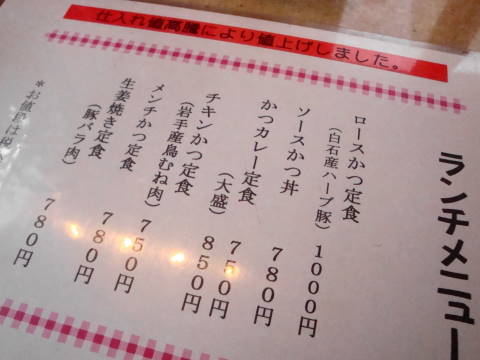 仕入れ値高騰により値上げしました。
ランチメニュー
ロースかつ定食 1000円
(白石産ハーブ豚)
ソースかつ丼 780円
かつカレー定食 750円
(大盛) 850円
チキンかつ定食 750円
(岩手産鳥むね肉)
メンチかつ定食 780円
生姜焼き定食 780円
(豚バラ肉)
*お値段は税